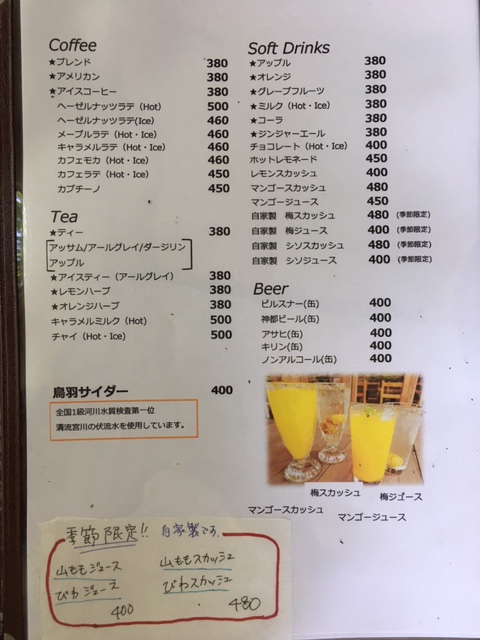 Coffee
★ブレンド 380
★アメリカン 380
★アイスコーヒー 380
ヘーゼルナッツラテ (Hot) 500
ヘーゼルナッツラテ(Ice) 460
メープルラテ (Hot・Ice) 460
キャラメルラテ (Hot・Ice) 460
カフェモカ (Hot・Ice) 460
カフェラテ (Hot・Ice) 450
カプチーノ 450
Tea
★ティー 380
アッサム/アールグレイ/ダージリン
アップル
★アイスティー (アールグレイ) 380
★レモンハーブ 380
★オレンジハーブ 380
キャラメルミルク (Hot) 500
チャイ (Hot・Ice) 500
鳥羽サイダー 400
全国1級河川水質検査第一位
清流宮川の伏流水を使用しています。
Soft Drinks
★アップル 380
★オレンジ 380
★グレープフルーツ 380
★ミルク (Hot・Ice) 380
★コーラ 380
★ジンジャーエール 380
チョコレート (Hot・Ice) 400
ホットレモネード 450
レモンスカッシュ 400
マンゴースカッシュ 480
マンゴージュース 450
自家製 梅スカッシュ 480 (季節限定)
自家製 梅ジュース 400 (季節限定)
自家製 シソスカッシュ 480 (季節限定)
自家製 シソジュース 400 (季節限定)
Beer
ピルスナー(缶) 400
神都ビール(缶) 400
アサヒ(缶) 400
キリン(缶) 400
ノンアルコール(缶) 400
梅スカッシュ 梅ジュース
マンゴースカッシュ マンゴージュース
季節限定!! 自家製です。
山ももジュース 山ももスカッシュ
びわジュース びわスカッシュ
400 480